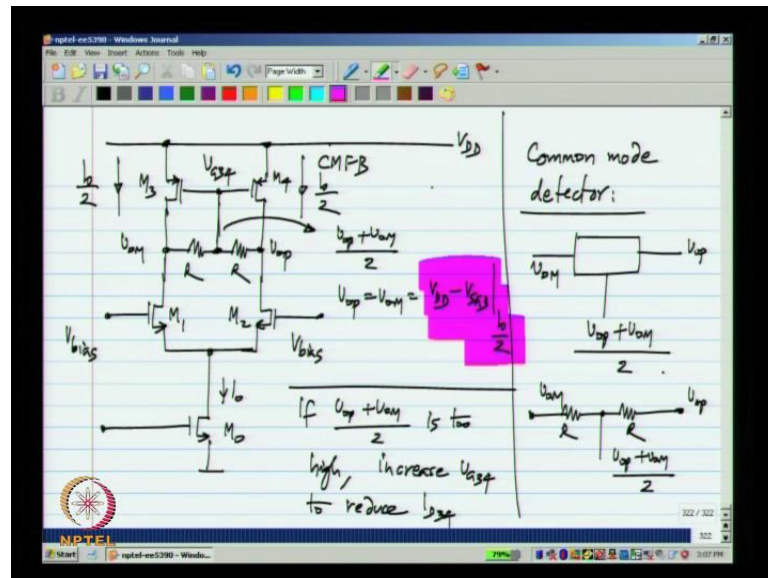 nptel-ee5390 - Windows Journal
File Edit View Insert Actions Tools Help
Page Width
B I
V_DD
CMFB
I_0/2
M_3
V_G34
M_4
I_0/2
V_OM
R
R
V_OP
(V_OP + V_OM)/2
V_OP = V_OM = V_DD - V_SG3 | I_0/2
M_1
M_2
V_bias
V_bias
I_0
M_0
if (V_OP + V_OM)/2 is too
high, increase V_G34
to reduce I_D34
Common mode
detector:
V_OM
V_OP
(V_OP + V_OM)/2
V_OM
V_OP
R
R
(V_OP + V_OM)/2
NPTEL
322 / 322
322
Start
nptel-ee5390 - Windo...
79%
3:07 PM